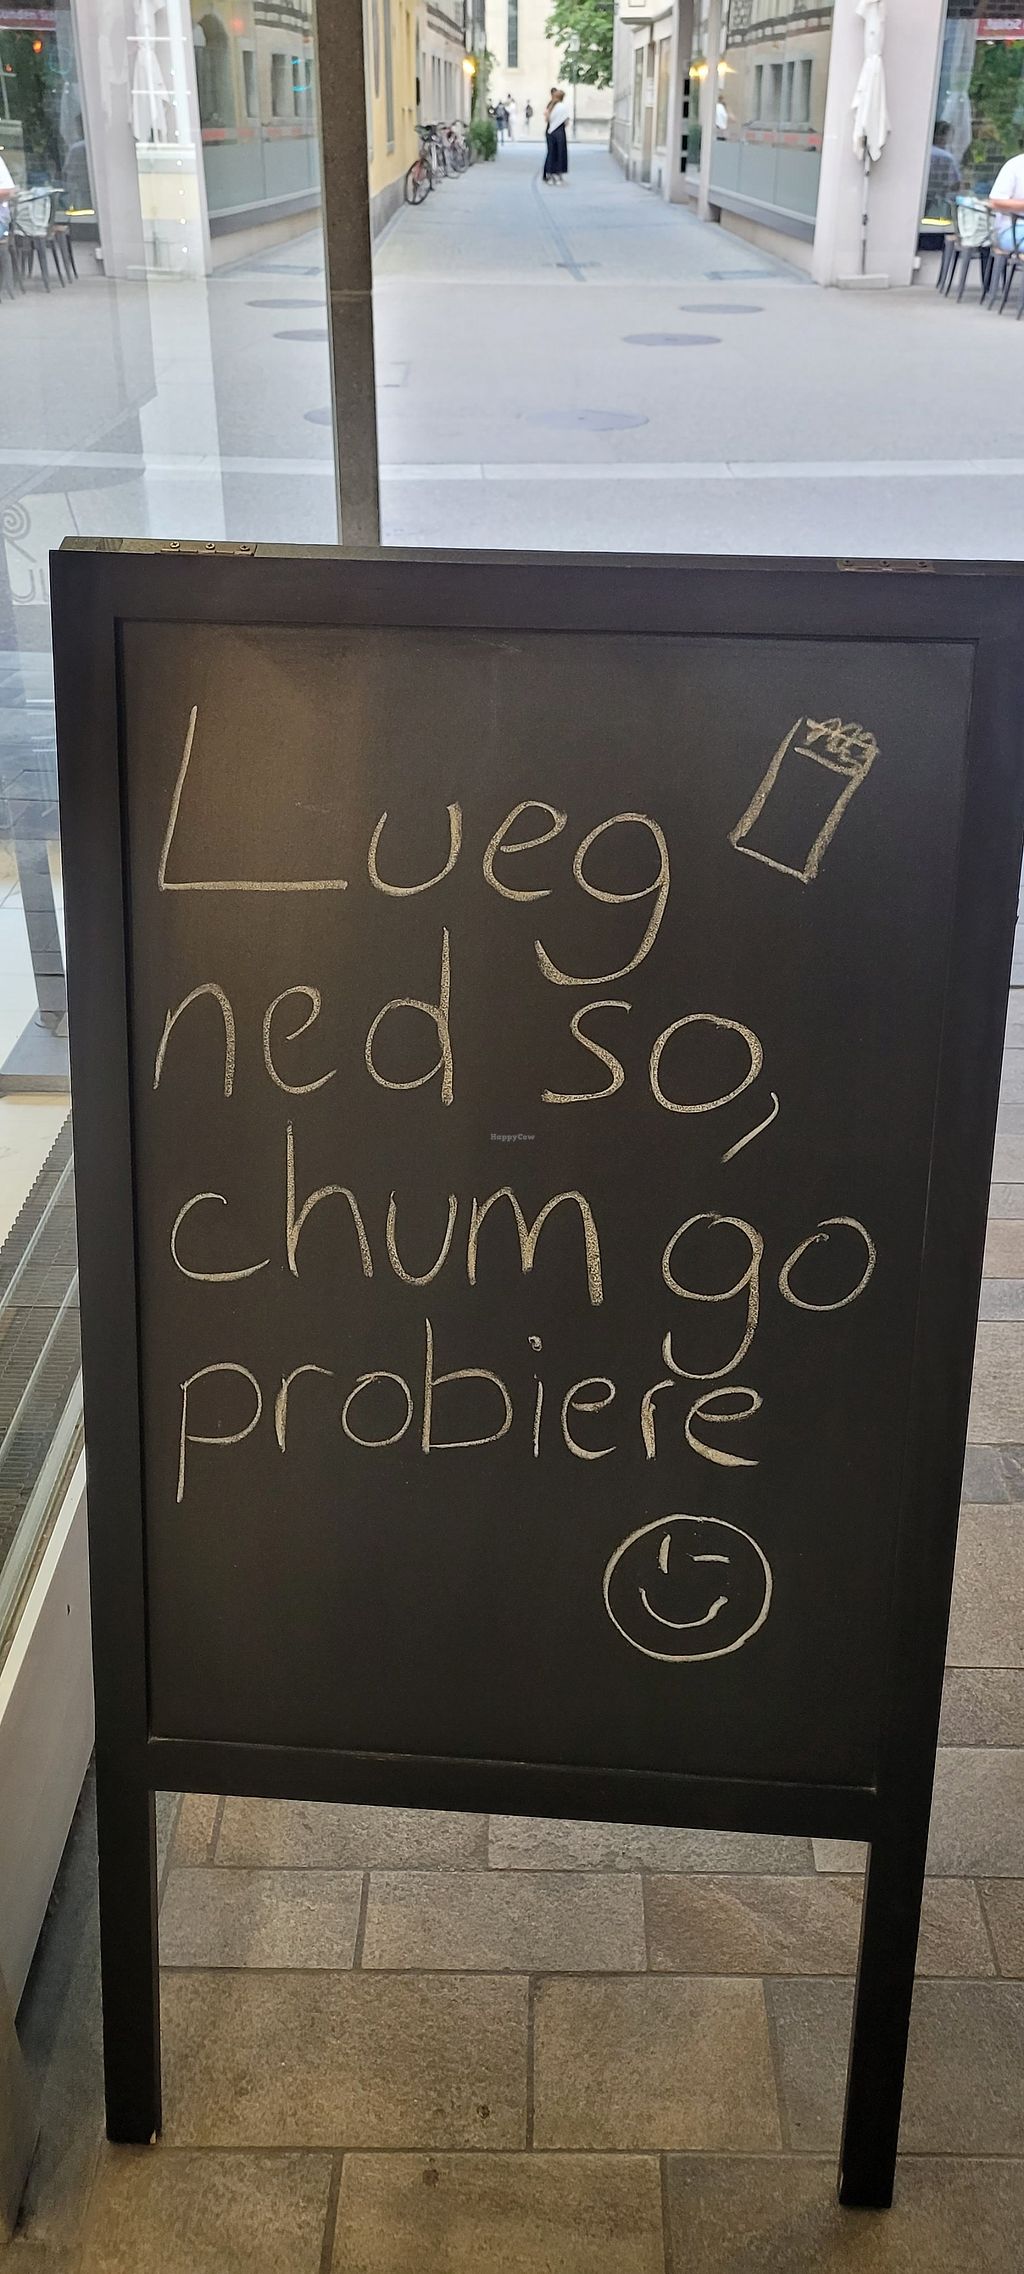 Lueg
ned so,
chum go
probiere
HappyCow